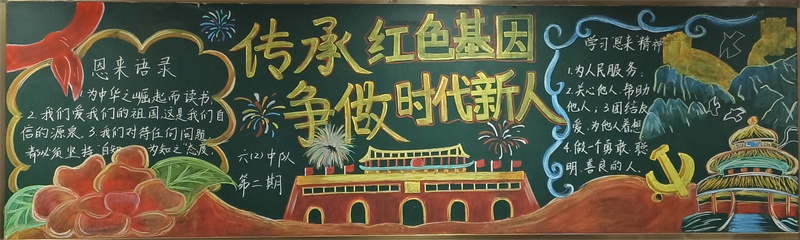 恩来语录
1.为中华之崛起而读书.
2.我们爱我们的祖国,这是我们自
信的源泉.3.我们对待任何问题
都必须坚持"自知 为知之"态度.
传承红色基因
争做时代新人
六(2)中队
第二期
学习"恩来"精神
1.为人民服务.
2.关心他人,帮助
他人;3.团结友
爱,为他人着想
4.做一个勇敢、聪
明、善良的人.